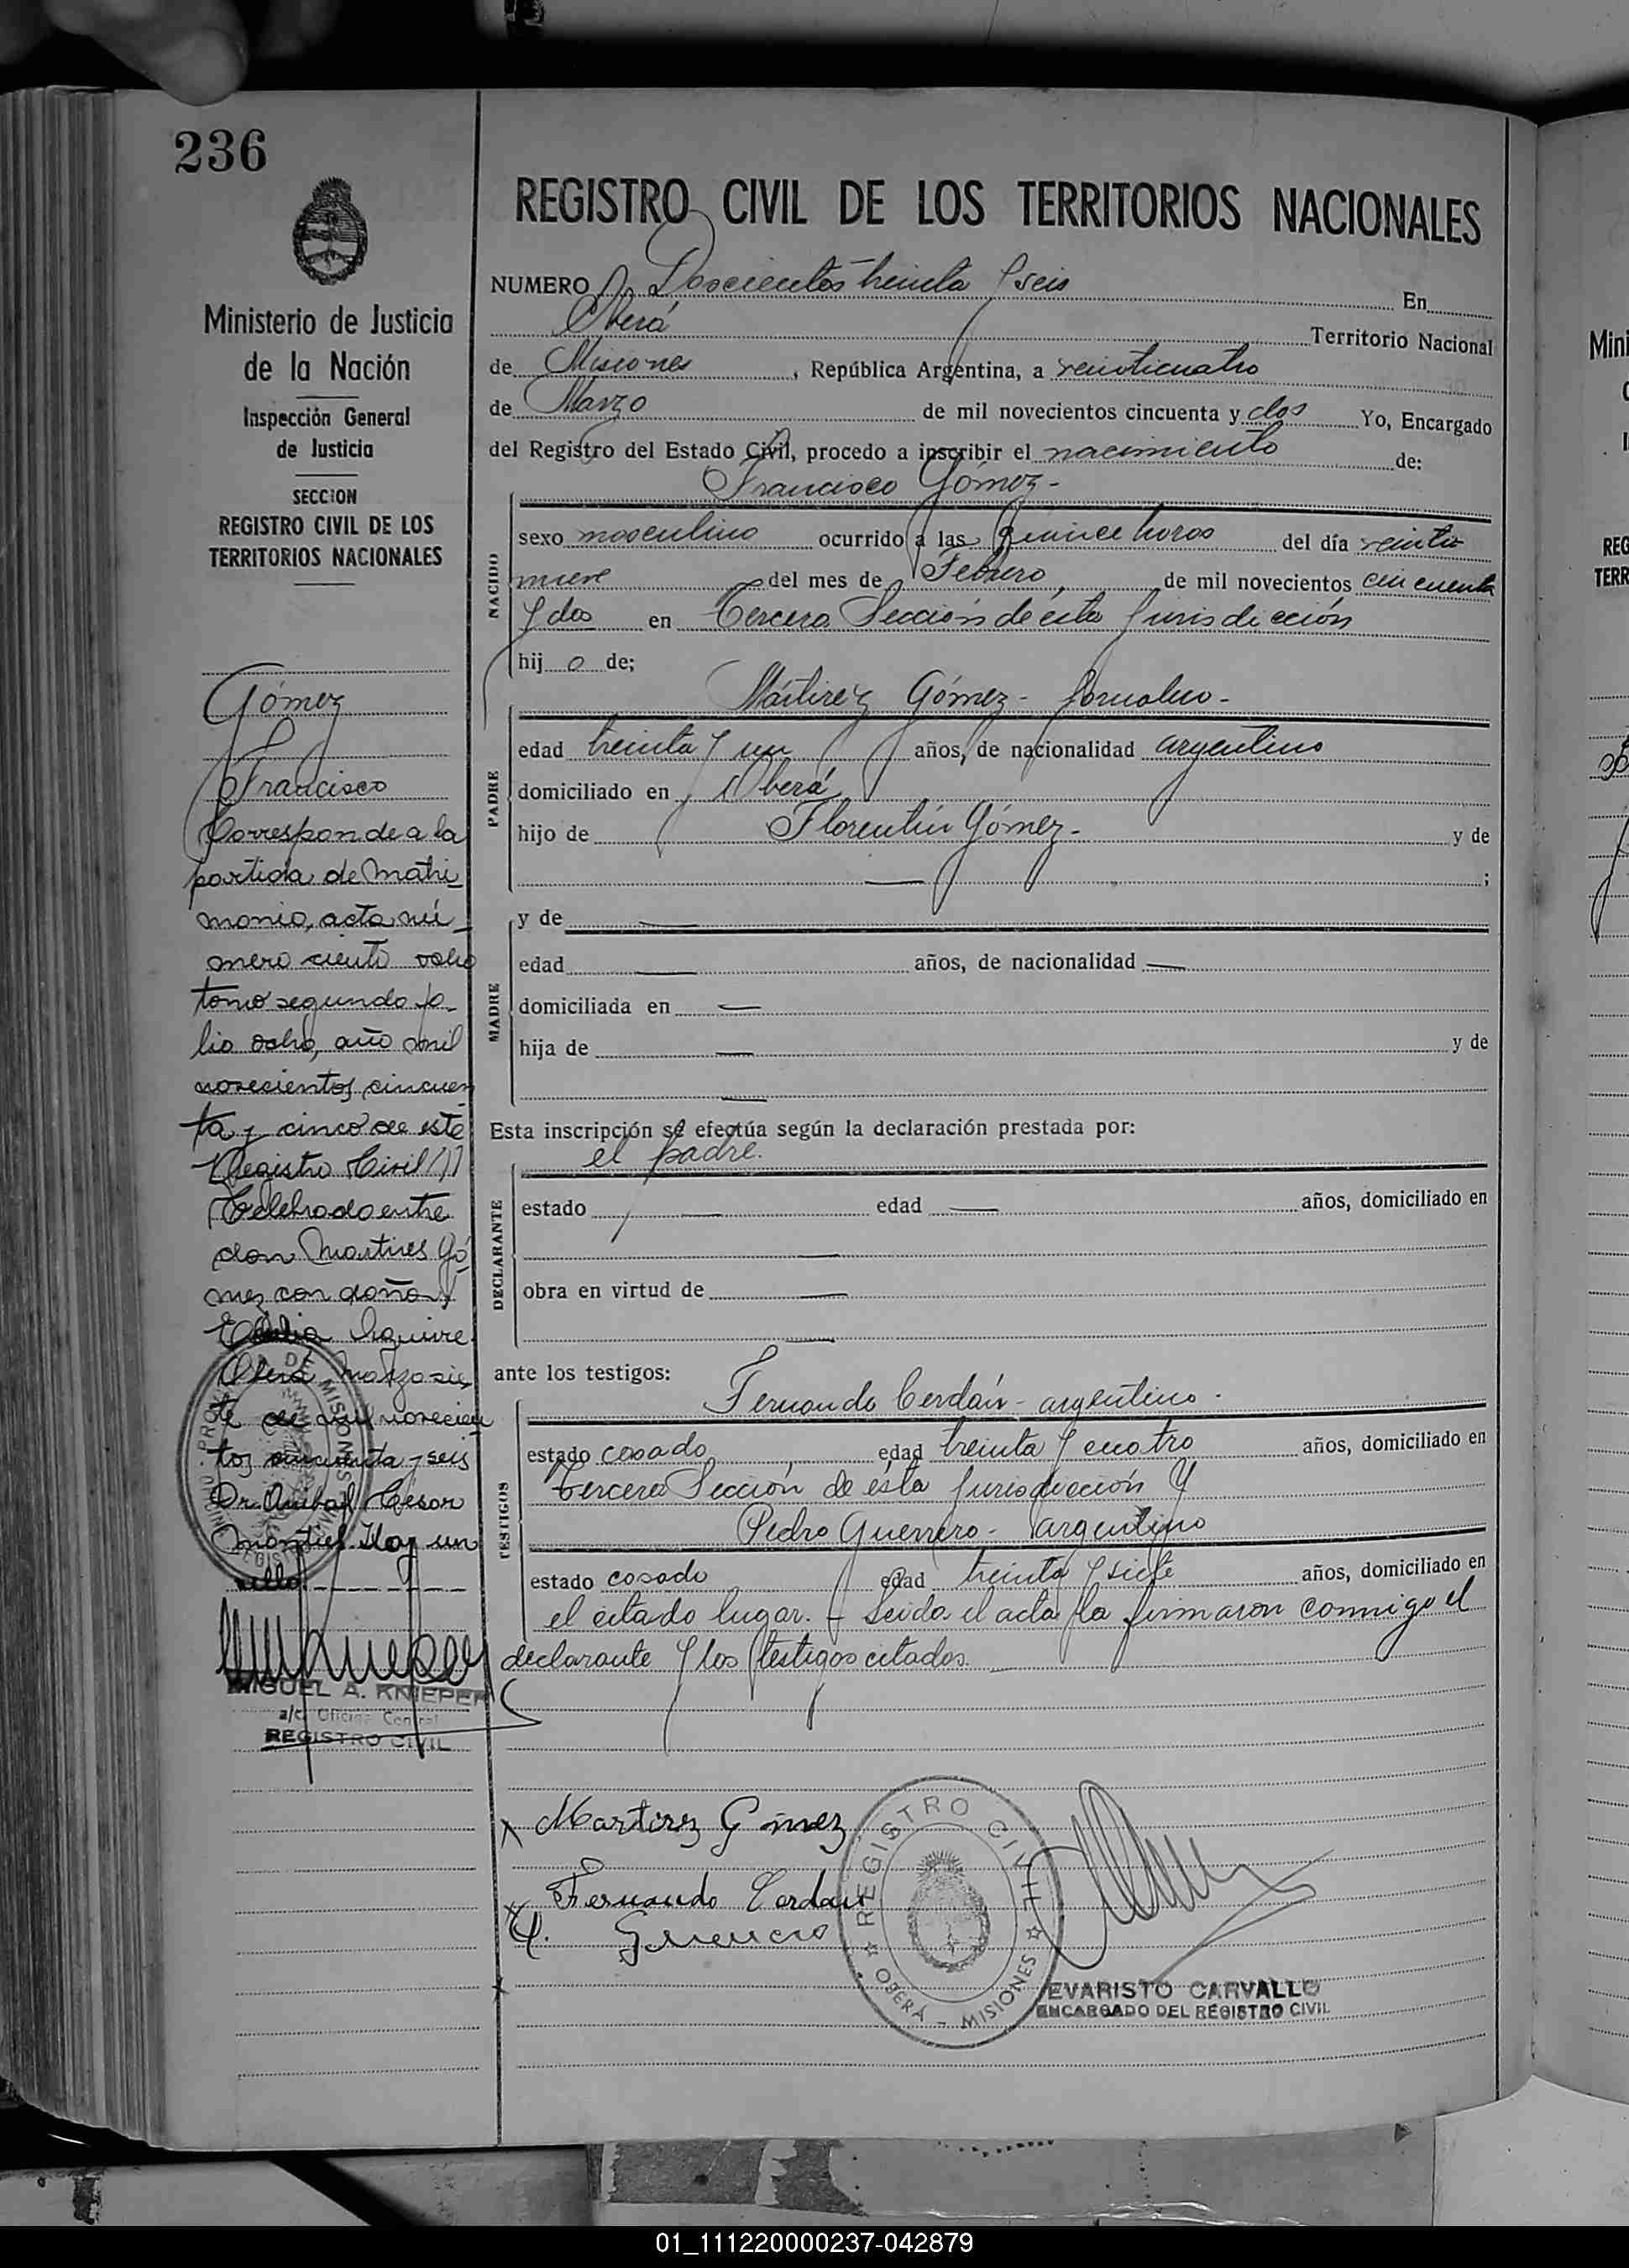 236
Ministerio de Justicia
de la Nación
Inspección General
de Justicia
SECCION
REGISTRO CIVIL DE LOS
TERRITORIOS NACIONALES
Gómez
Francisco
Corresponde a la
partida de Matri_
monio, acta nú_
mero ciento ocho
tomo segundo fo_
lio ocho, año mil
novecientos cincuen
ta y cinco de este
Registro Civil
Celebrado entre
don Martires Gó
mez con doña
Izquirre.
Oberá Marzo sie_
te de mil novecien
tos cincuenta y seis
Dr. Anibal Cesar
Montiel. Hay un
sello.
MIGUEL A. KNIEPER
a/c. Oficina Central
REGISTRO CIVIL
REGISTRO CIVIL DE LOS TERRITORIOS NACIONALES
NUMERO Doscientos treinta y seis En
Oberá Territorio Nacional
de Misiones, República Argentina, a veinticuatro
de Marzo de mil novecientos cincuenta y dos Yo, Encargado
del Registro del Estado Civil, procedo a inscribir el nacimiento de:
Francisco Gómez-
NACIDO
sexo masculino ocurrido a las quince horas del día veinti
nueve del mes de Febrero, de mil novecientos cincuenta
y dos en Tercera Sección de ésta Jurisdicción
hij o de;
Mártirez Gómez - Jornalero -
PADRE
edad treinta y un años, de nacionalidad argentino
domiciliado en Oberá
hijo de Florentín Gómez- y de
— ;
MADRE
y de —
edad — años, de nacionalidad —
domiciliada en —
hija de — y de
—
Esta inscripción se efectúa según la declaración prestada por:
el padre.
DECLARANTE
estado — edad — años, domiciliado en
—
obra en virtud de —
—
ante los testigos:
Fernando Cerdán - argentino -
TESTIGOS
estado casado, edad treinta y cuatro años, domiciliado en
Tercera Sección de ésta Jurisdicción y
Pedro Guerrero - argentino
estado casado edad treinta y siete años, domiciliado en
el citado lugar. - Leida el acta la firmaron conmigo el
declarante y los testigos citados.
Martirez Gomez
Fernando Cerdan
REGISTRO CIVIL
OBERÁ - MISIONES
EVARISTO CARVALLO
ENCARGADO DEL REGISTRO CIVIL
Mini
REG
TERR
01_111220000237-042879